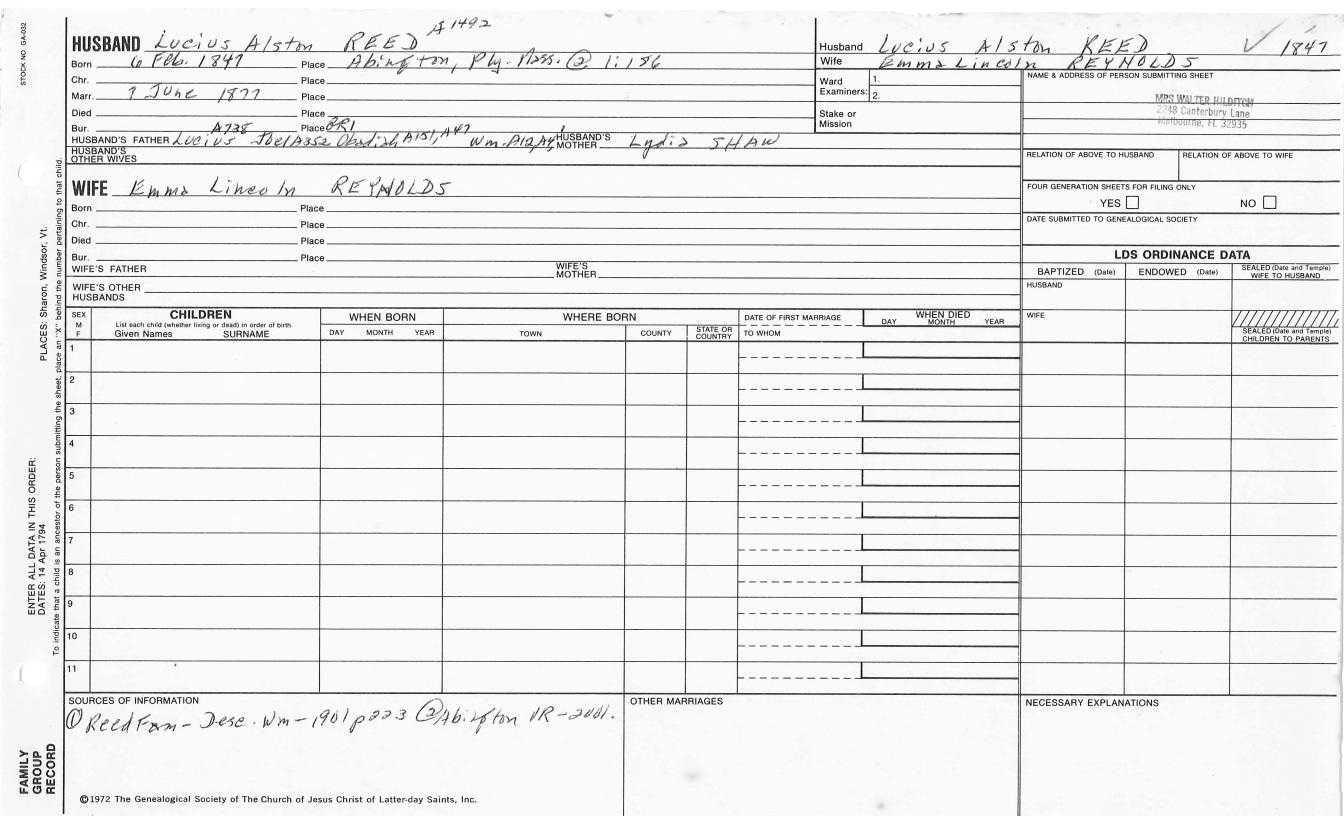 STOCK NO. GA-032
A1492
HUSBAND Lucius Alston REED
Born 6 Feb. 1847 Place Abington, Ply. Mass. @ 1:186
Chr. Place
Marr. 7 June 1877 Place
Died Place
Bur. A738 Place BR1
HUSBAND'S FATHER Lucius Joel A352 Obadiah A151, A47 Wm. A12, A4, HUSBAND'S MOTHER Lydia SHAW
HUSBAND'S OTHER WIVES
WIFE Emma Lincoln REYNOLDS
Born Place
Chr. Place
Died Place
Bur. Place
WIFE'S FATHER WIFE'S MOTHER
WIFE'S OTHER HUSBANDS
Husband Lucius Alston REED ✓ 1847
Wife Emma Lincoln REYNOLDS
Ward Examiners: 1.
2.
Stake or Mission
NAME & ADDRESS OF PERSON SUBMITTING SHEET
MRS WALTER HILDITCH
2248 Canterbury Lane
Melbourne, FL 32935
RELATION OF ABOVE TO HUSBAND RELATION OF ABOVE TO WIFE
FOUR GENERATION SHEETS FOR FILING ONLY
YES NO
DATE SUBMITTED TO GENEALOGICAL SOCIETY
LDS ORDINANCE DATA
BAPTIZED (Date) ENDOWED (Date) SEALED (Date and Temple) WIFE TO HUSBAND
HUSBAND
WIFE
SEALED (Date and Temple) CHILDREN TO PARENTS
SEX M F
CHILDREN
List each child (whether living or dead) in order of birth
Given Names SURNAME
WHEN BORN
DAY MONTH YEAR
WHERE BORN
TOWN COUNTY STATE OR COUNTRY
DATE OF FIRST MARRIAGE
TO WHOM
WHEN DIED
DAY MONTH YEAR
1
2
3
4
5
6
7
8
9
10
11
SOURCES OF INFORMATION
① Reed Fam - Desc. Wm - 1901 p223 ② Abington VR - 2001.
OTHER MARRIAGES
NECESSARY EXPLANATIONS
©1972 The Genealogical Society of The Church of Jesus Christ of Latter-day Saints, Inc.
FAMILY GROUP RECORD
ENTER ALL DATA IN THIS ORDER:
DATES: 14 Apr 1794 PLACES: Sharon, Windsor, Vt.
To indicate that a child is an ancestor of the person submitting the sheet, place an "X" behind the number pertaining to that child.